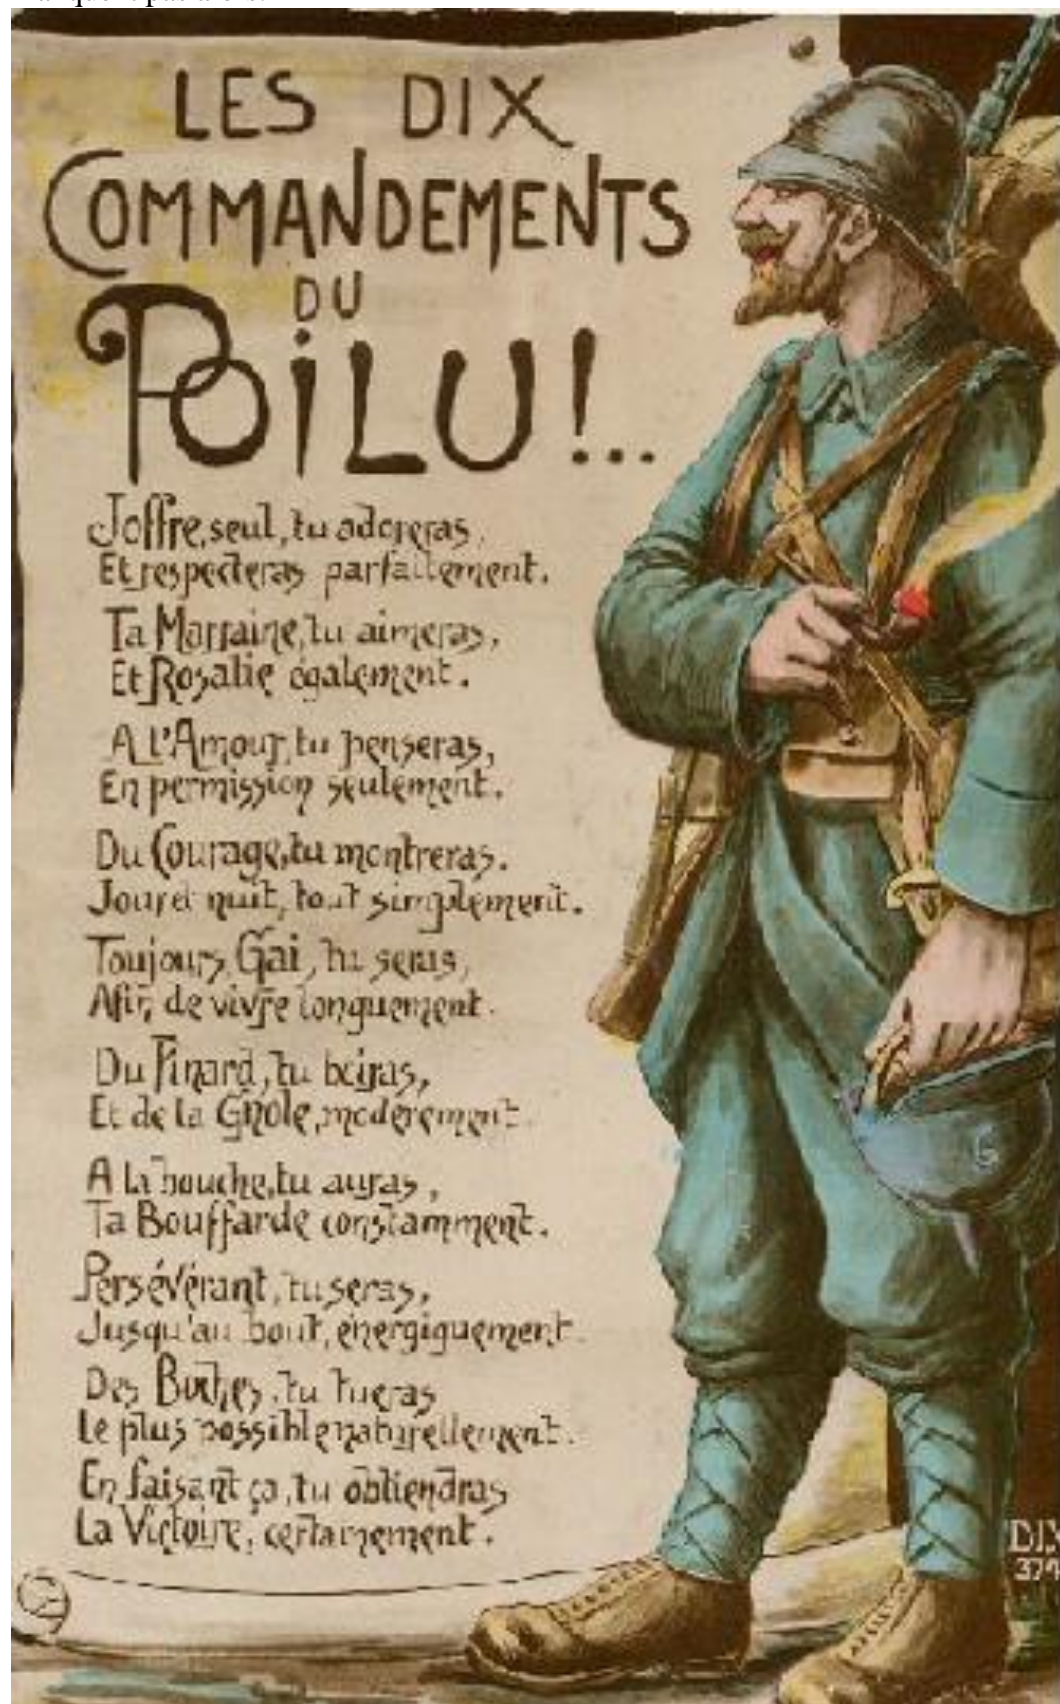 LES DIX
COMMANDEMENTS
DU
POILU!...
Joffre, seul, tu adoreras,
Et respecteras parfaitement.
Ta Marraine, tu aimeras,
Et Rosalie également.
A l'Amour, tu penseras,
En permission seulement.
Du Courage, tu montreras.
Jour et nuit, tout simplement.
Toujours Gai, tu seras,
Afin de vivre longuement.
Du Pinard, tu boiras,
Et de la Gnole, modérément.
A la bouche, tu auras,
Ta Bouffarde constamment.
Persévérant, tu seras,
Jusqu'au bout, énergiquement.
Des Boches, tu tueras
Le plus possible naturellement.
En faisant ça, tu obtiendras
La Victoire, certainement.
DIX